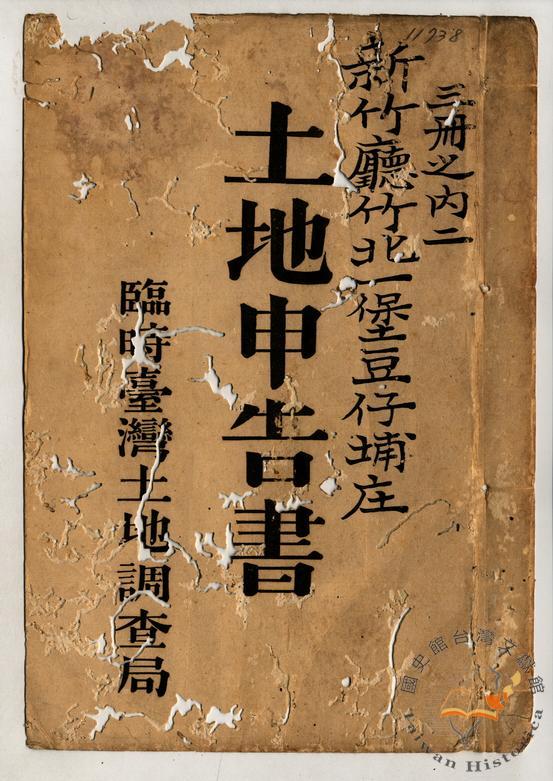 11938
三冊之内二
新竹廳竹北一堡豆仔埔庄
土地申告書
臨時臺灣土地調查局
國史館台灣文獻館
Taiwan Historica